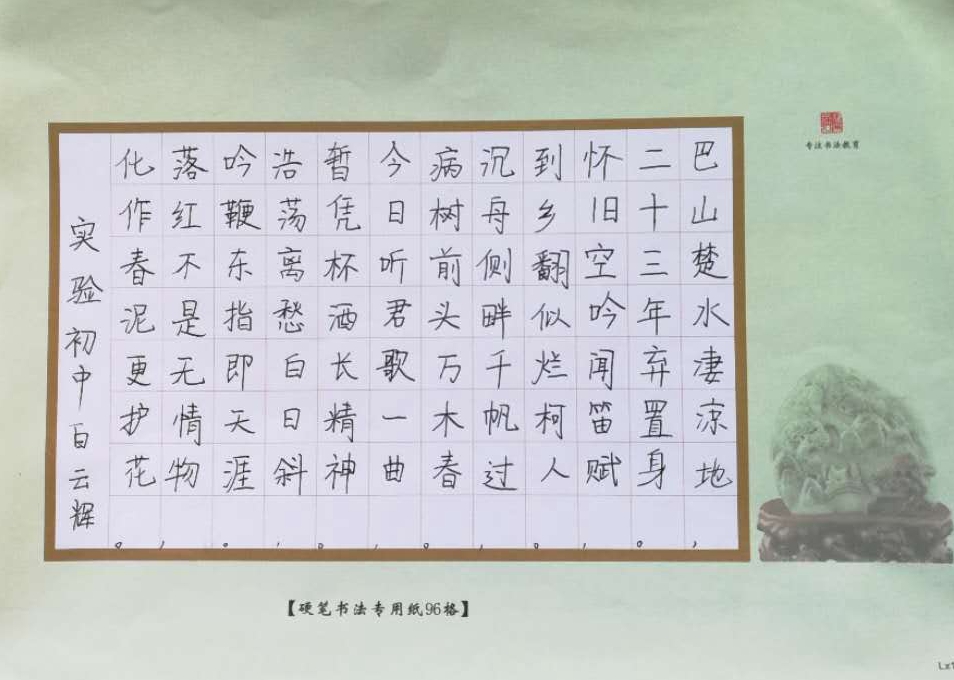 巴山楚水凄凉地，
二十三年弃置身。
怀旧空吟闻笛赋，
到乡翻似烂柯人。
沉舟侧畔千帆过，
病树前头万木春。
今日听君歌一曲，
暂凭杯酒长精神。
浩荡离愁白日斜，
吟鞭东指即天涯。
落红不是无情物，
化作春泥更护花。
实验初中白云辉
专注书法教育
【硬笔书法专用纸96格】